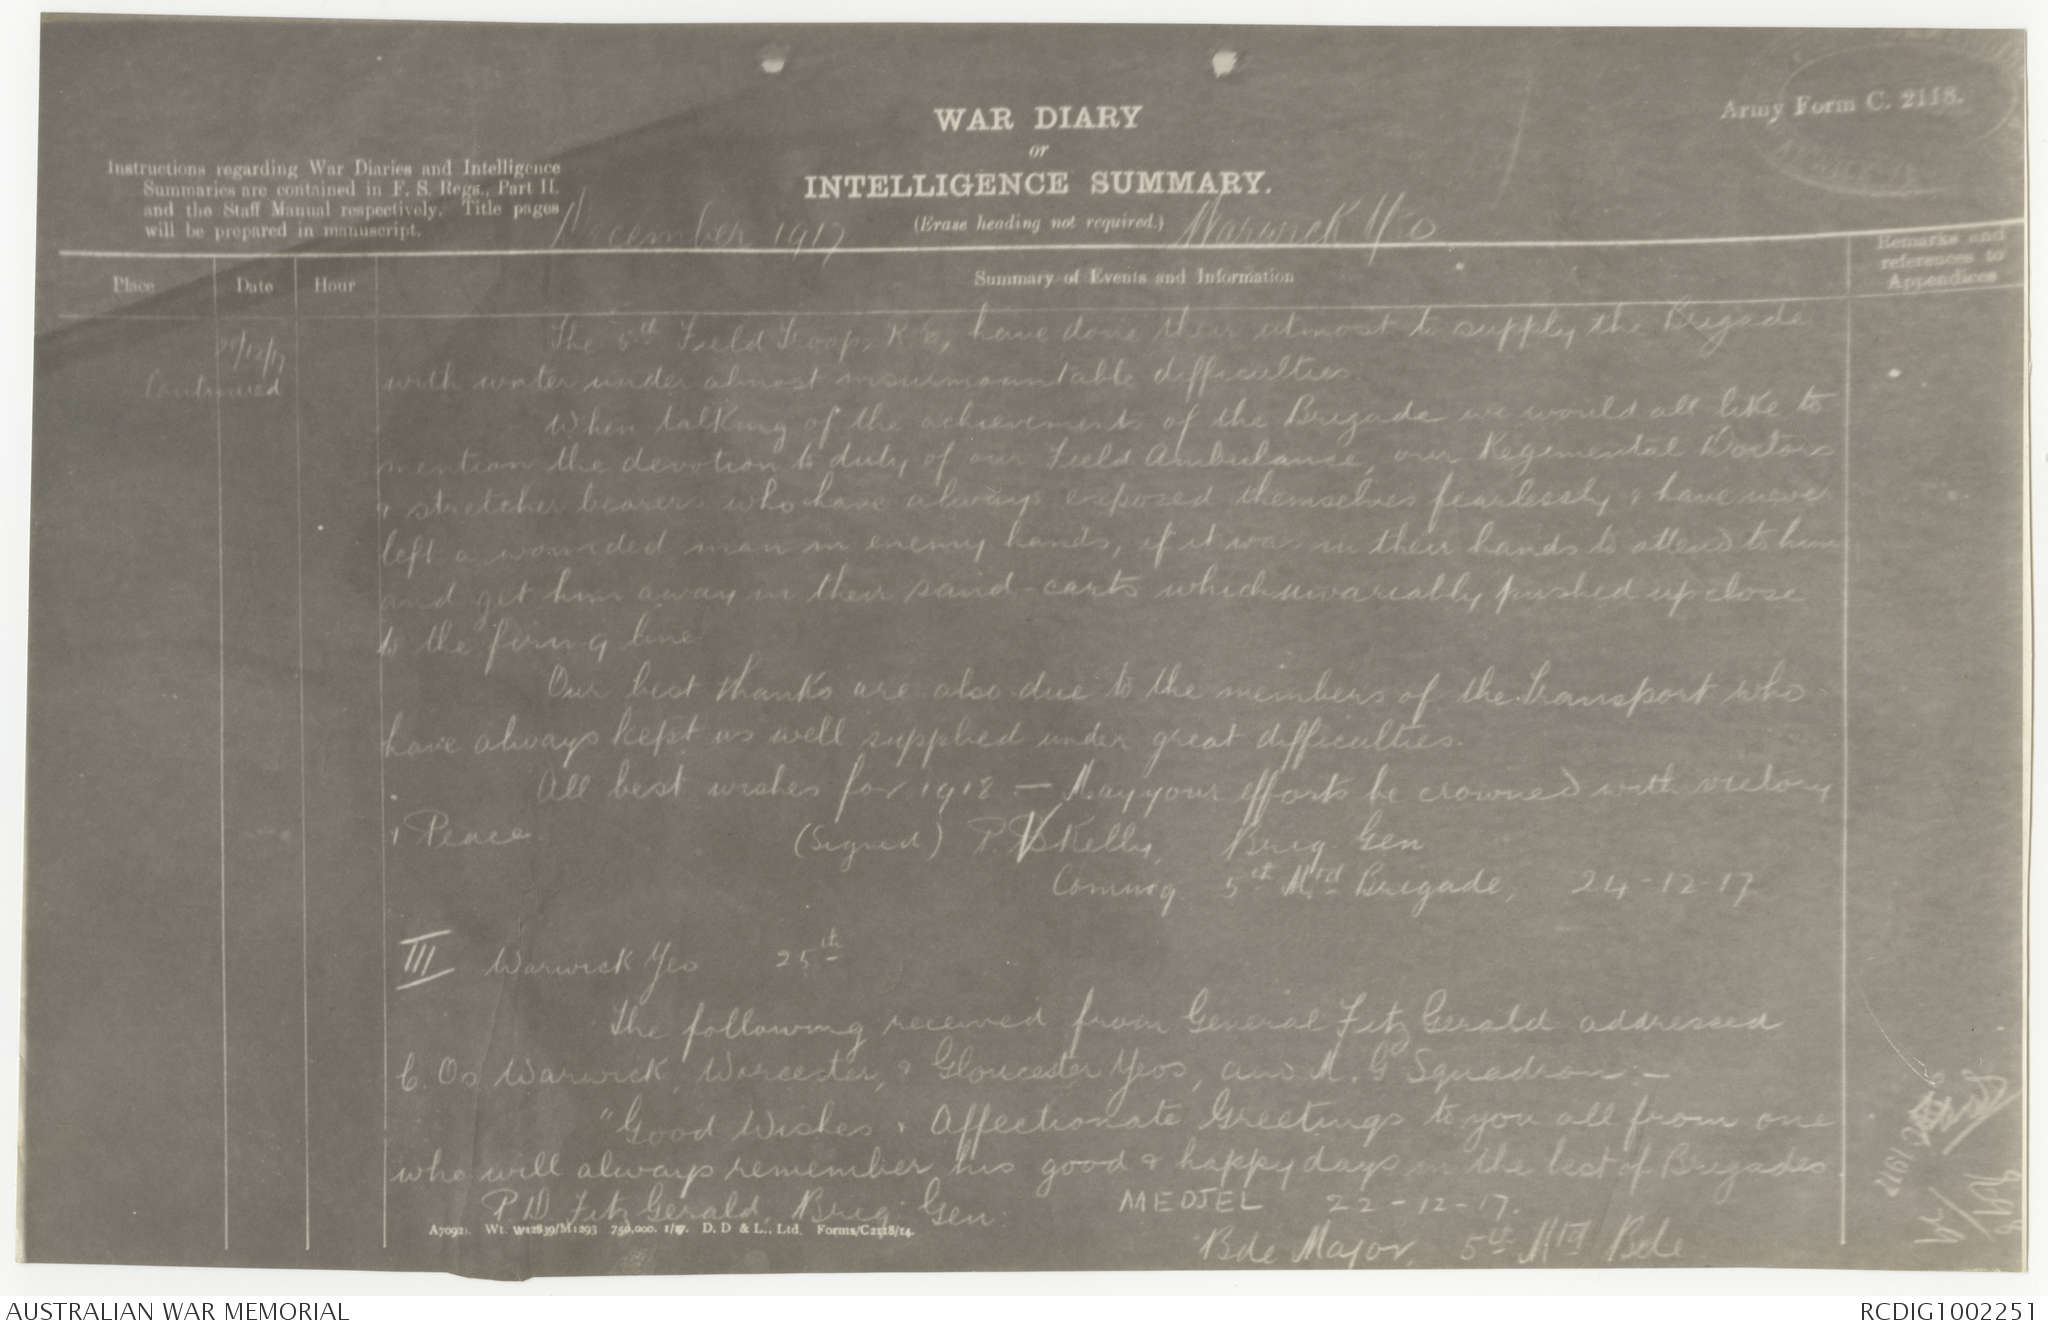 Army Form C. 2118.
WAR DIARY
or
INTELLIGENCE SUMMARY.
(Erase heading not required.)
Instructions regarding War Diaries and Intelligence
Summaries are contained in F. S. Regs., Part II.
and the Staff Manual respectively. Title pages
will be prepared in manuscript.
December 1917
Warwick Yeo
Place
Date
Hour
Summary of Events and Information
Remarks and
references to
Appendices
/12/17
Continued
The 5th Field Troop, R.E., have done their utmost to supply the Brigade
with water under almost insurmountable difficulties.
When talking of the achievements of the Brigade we would all like to
mention the devotion to duty of our Field Ambulance, our Regimental Doctors
& stretcher bearers who have always exposed themselves fearlessly & have never
left a wounded man in enemy hands, if it was in their hands to attend to him
and get him away in their sand-carts which invariably pushed up close
to the firing line.
Our best thanks are also due to the members of the transport who
have always kept us well supplied under great difficulties.
All best wishes for 1918 — May your efforts be crowned with victory
& Peace
(Signed) P. Kelly, Brig Gen
Commdg 5th Mtd Brigade, 24-12-17
III Warwick Yeo 25th
The following received from General FitzGerald addressed
C.Os Warwick, Worcester, & Gloucester Yeos, and M.G Squadron: —
"Good Wishes & Affectionate Greetings to you all from one
who will always remember his good & happy days in the best of Brigades
P. D. FitzGerald, Brig. Gen. MEDJEL 22-12-17.
A7092). Wt. W12839/M1293 750,000. 1/17. D. D & L., Ltd. Forms/C2118/14.
Bde Major, 5th Mtd Bde
1917
AUSTRALIAN WAR MEMORIAL
RCDIG1002251